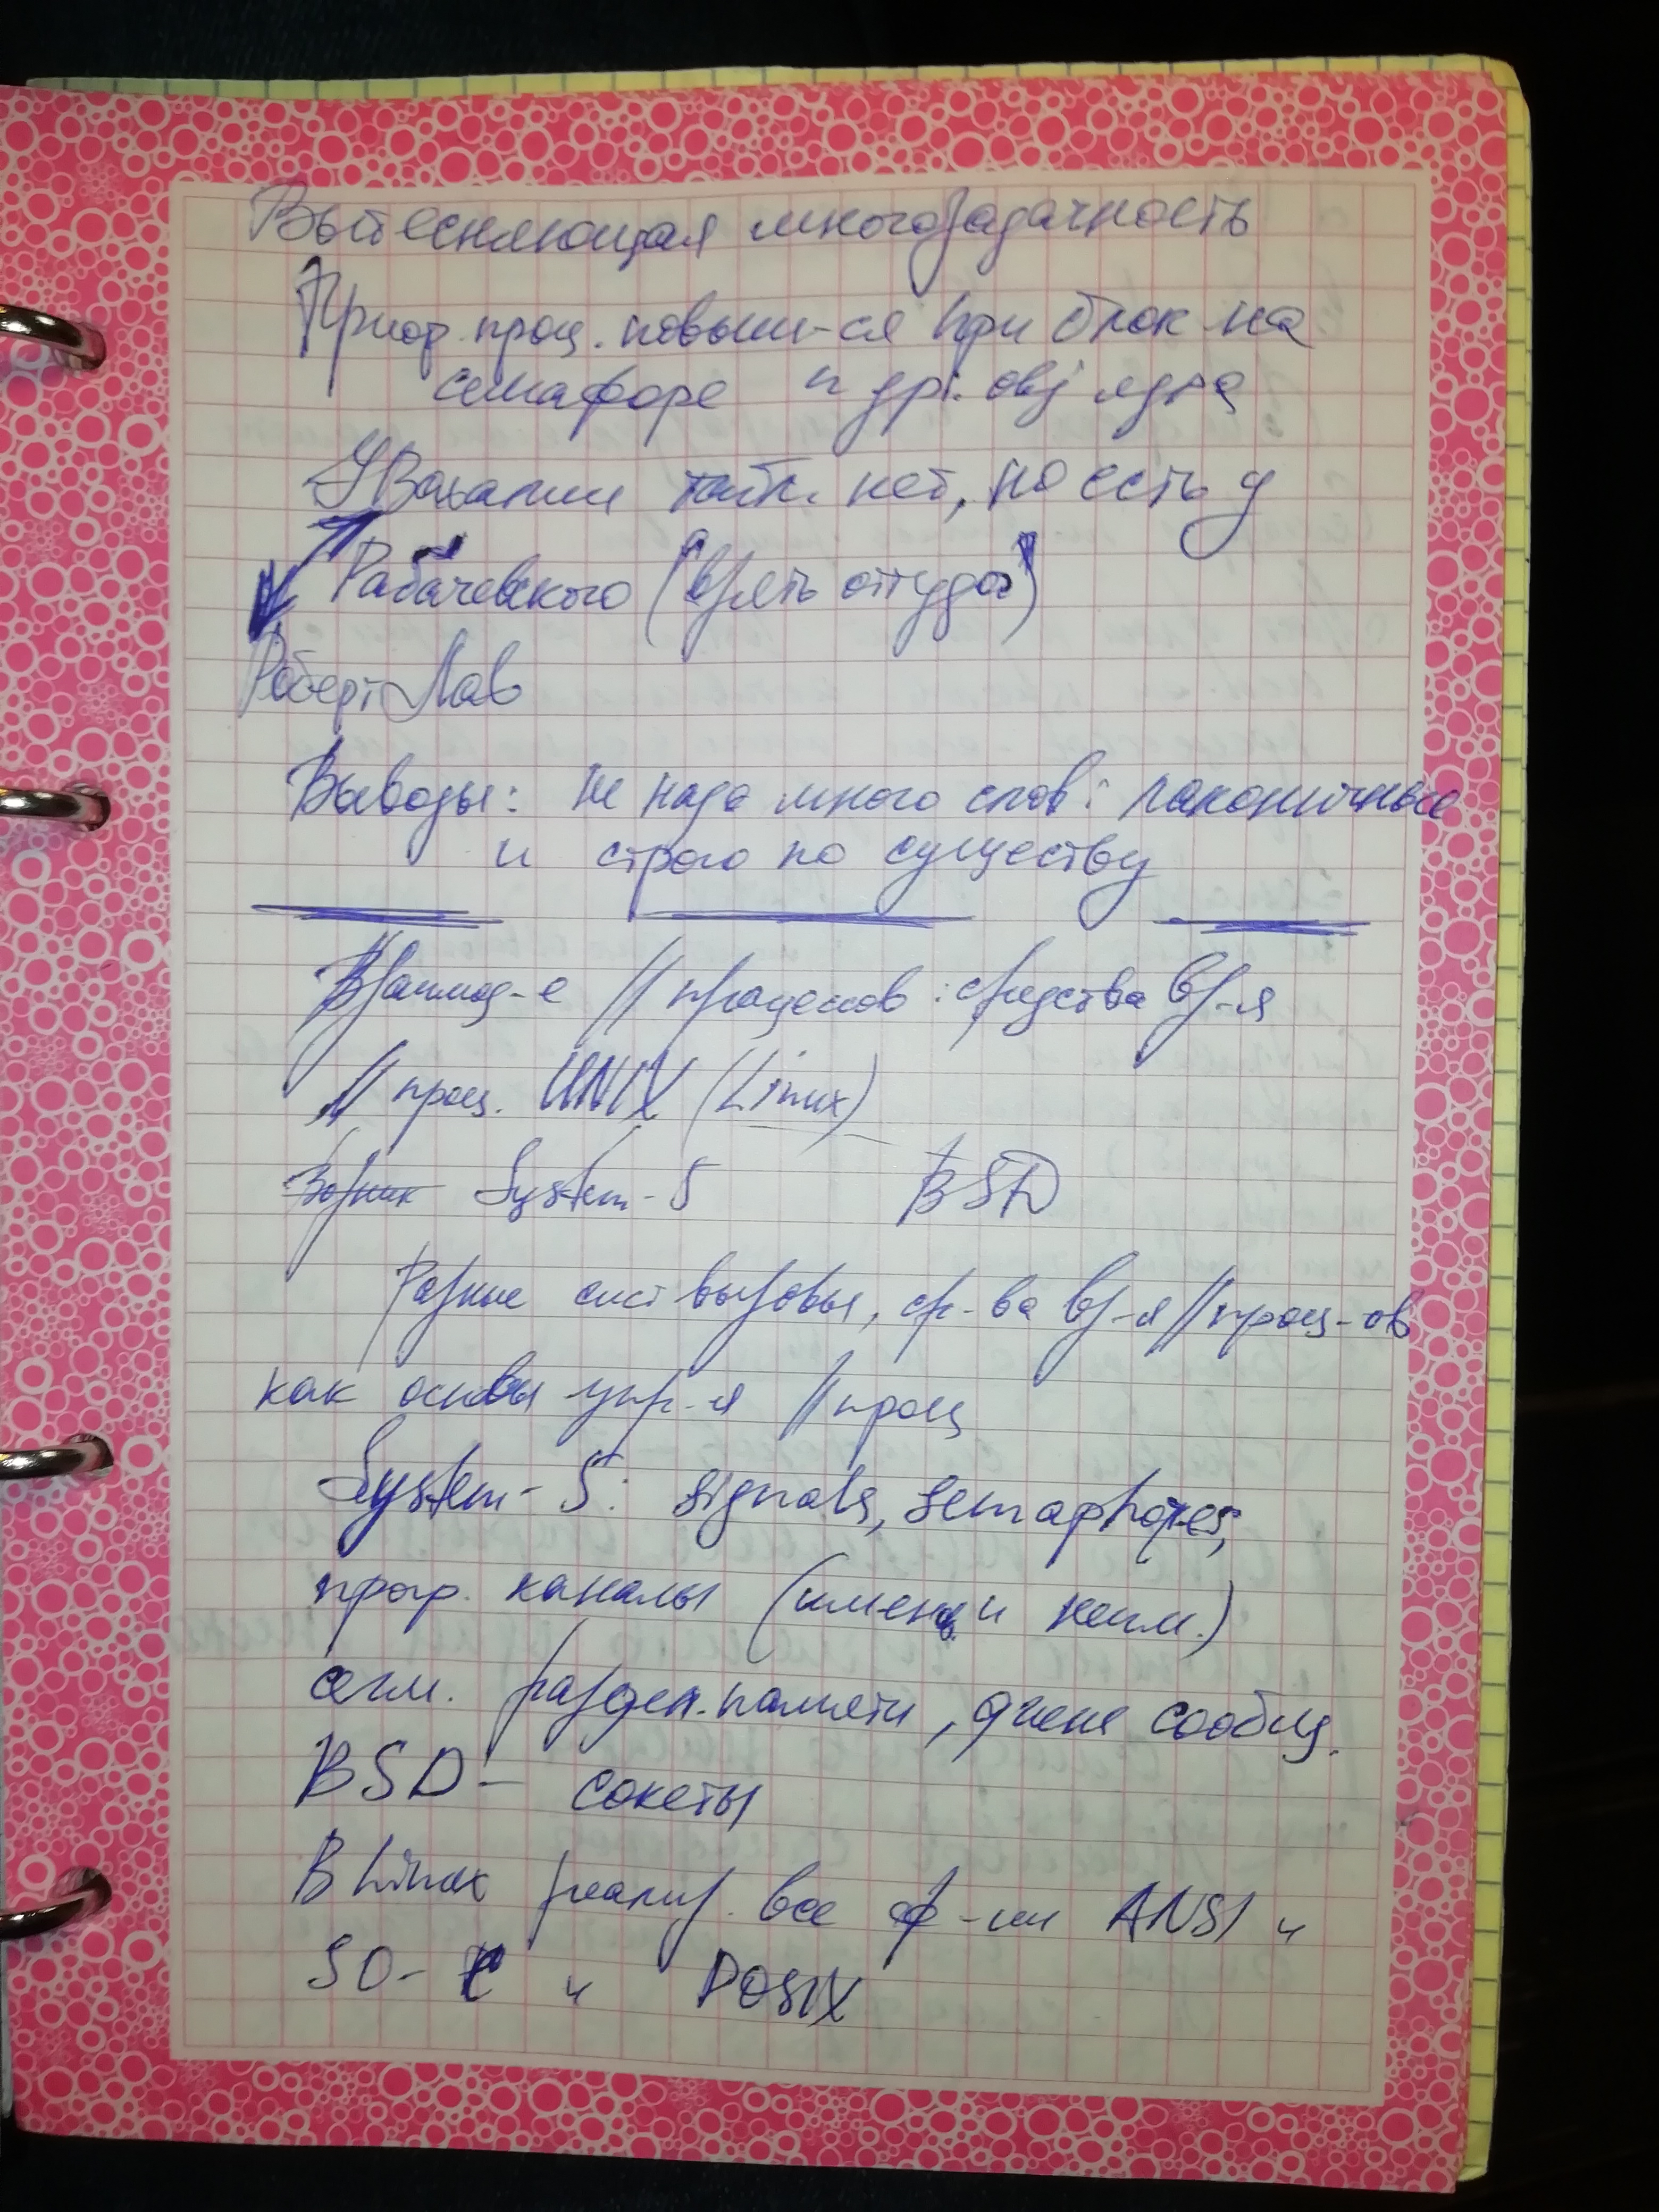 Вытесняющая многозадачность
Приор. проц. повыш-ся при блок на
семафоре и др. obj ядра
У Вахалии табл. нет, но есть у
Рабачевского (взять оттуда)
Роберт Лав
Выводы: не надо много слов: лаконичные
и строго по существу
Взаимод-е // процессов: средства вз-я
// проц. UNIX (Linux)
System-5 BSD
Разные сист вызовы, ср-ва вз-я // проц-ов
как основы упр-я // проц
System-5: signals, semaphores,
прогр. каналы (именов. и неим.)
сегм. раздел. памяти, очене сообщ.
BSD- сокеты
В Linux реализ. все ф-ии ANSI и
SO- C и POSIX